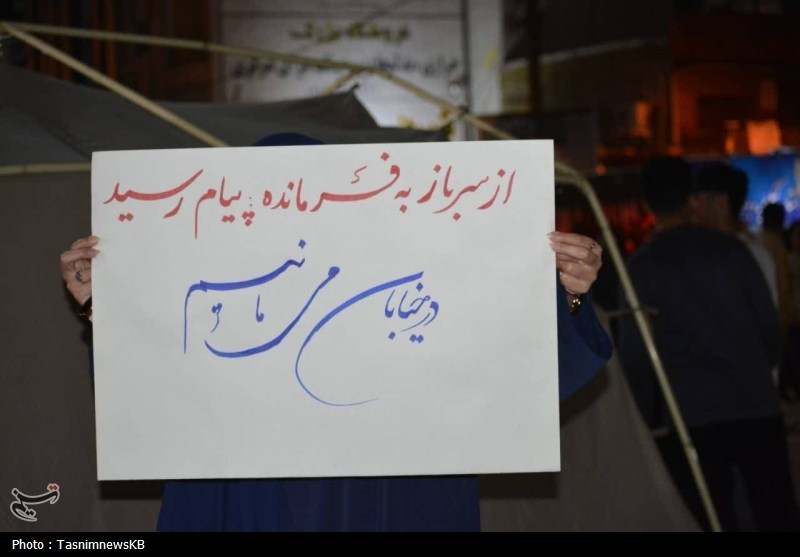 فروشگاه بزرگ
از سرباز به فرمانده: پیام رسید
در خیابان می مانیم
تسنیم
Photo : TasnimnewsKB